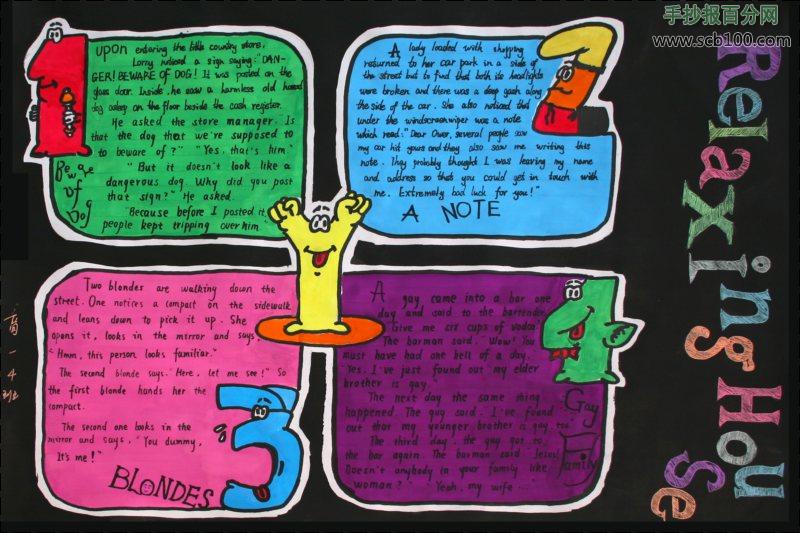 手抄报百分网
www.scb100.com
Relaxing HoU
se
upon entering the little country store,
Lorry noticed a sign saying: "DAN-
GER! BEWARE OF DOG! It was posted on the
glass door. Inside, he saw a harmless old hound
dog asleep on the floor beside the cash register.
He asked the store manager. Is
that the dog that we're supposed to
to beware of?" "Yes, that's him."
"But it doesn't look like a
dangerous dog. Why did you post
that sign?" He asked.
"Because before I posted it,
people kept tripping over him.
of
Dog
A lady loaded with shopping
returned to her car park in a side of
the street but to find that both its headlights
were broken and there was a deep gash along
the side of the car. She also noticed that
under the windscreenwiper was a note
which read: "Dear Owner, several people saw
my car hit yours and they also saw me writing this
note. They probably thought I was leaving my name
and address so that you could get in touch with
me. Extremely bad luck for you!"
A NOTE
Two blondes are walking down the
street. One notices a compact on the sidewalk
and leans down to pick it up. She
opens it, looks in the mirror and says,
"Hmm, this person looks familiar."
The second blonde says, "Here, let me see!" So
the first blonde hands her the
compact.
The second one looks in the
mirror and says, "You dummy,
It's me!"
BLONDES
A gay came into a bar one
day and said to the bartender
"Give me six cups of vodca"
The barman said: "Wow! You
must have had one hell of a day."
"Yes, I've just found out my elder
brother is gay."
The next day the same thing
happened. The guy said. I've found
out that my younger brother is gay, too.
The third day, the guy got to
the bar again. The barman said. Jesus!
Doesn't anybody in your family like
woman?" "Yeah, my wife ...
Gay
Family
高一4班